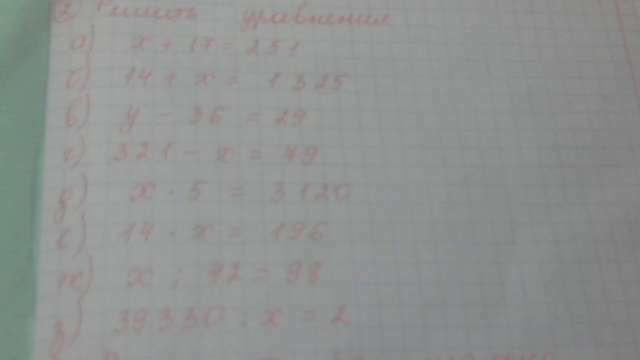 Решить уравнения
а) x + 17 = 251
б) 14 + x = 1325
в) y - 36 = 29
г) 321 - x = 49
д) x · 5 = 3120
е) 14 · x = 196
ж) x : 42 = 98
з) 39330 : x = 2